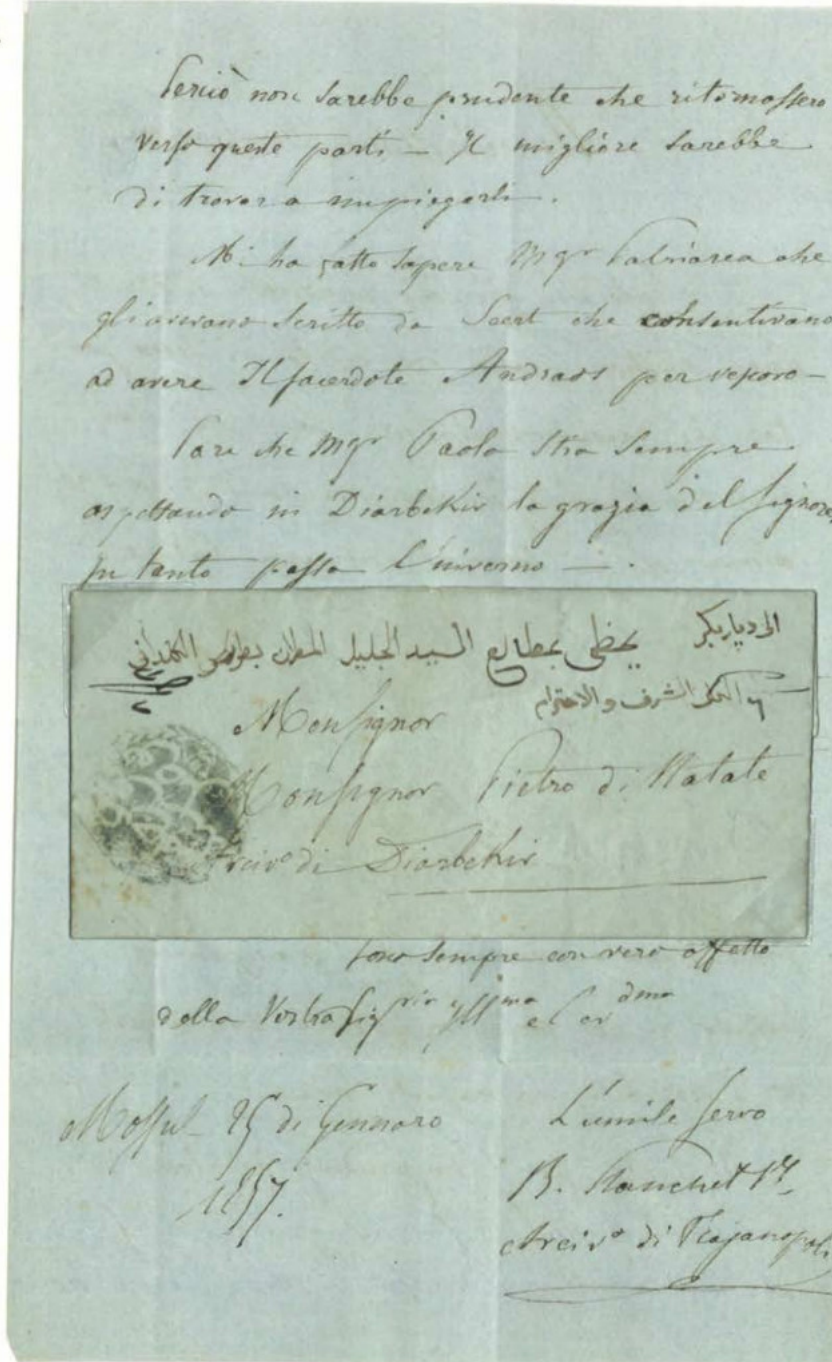 Perciò non sarebbe prudente che ritornassero
verso queste parti — Il migliore sarebbe
di trovar a impiegarli.
Mi ha fatto sapere Mgr Patriarca che
gli avevano scritto da Seert che consentivano
ad avere Il sacerdote Andraos per vescovo —
Pare che Mgr Paolo sta sempre
aspettando in Diarbekir la grazia del Signore,
In tanto passa l'inverno — .
الى ديار بكر
يحظى بمطالع السيد الجليل المطران بطرس الكلداني
الكلي الشرف والاحترام
Monsignor
Monsignor Pietro di Natale
Arcivo di Diarbekir
sono sempre con vero affetto
della Vostra Sigria Illma e
Mossul 25 di Gennaro
1857.
L'umile servo
B. Planchet
Arcivo di Trajanopoli